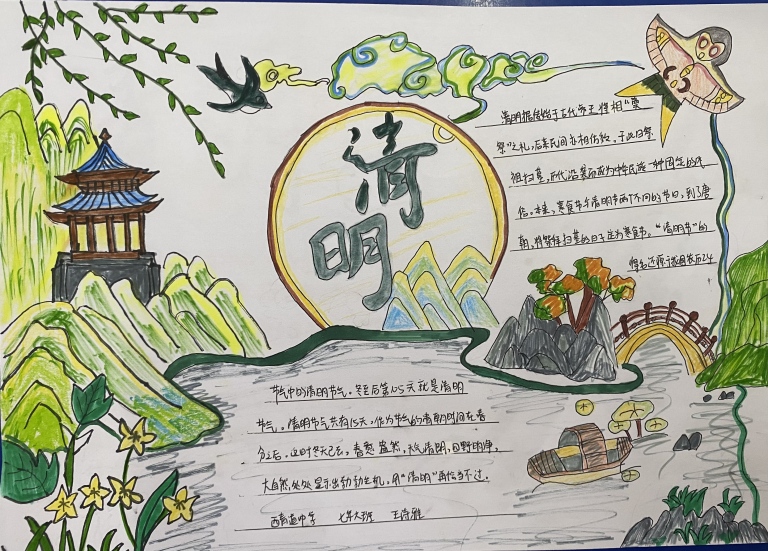 清明
清明据传始于古代帝王将相"墓
祭"之礼,后来民间亦相仿效,于此日祭
祖扫墓,历代沿袭而成为中华民族一种固定的风
俗。本来,寒食节与清明节两个不同的节日,到了唐
朝,将祭拜扫墓的日子定为寒食节。"清明节"的
得名还源于我国农历24
节气中的清明节气。冬至后第105天就是清明
节气。清明节气共有15天,作为节气的清明时间在春
分之后。这时冬天已去,春意盎然,天气清朗,四野明净,
大自然处处显示出勃勃生机。用"清明"再恰当不过。
中学 七年六班 王诗雅